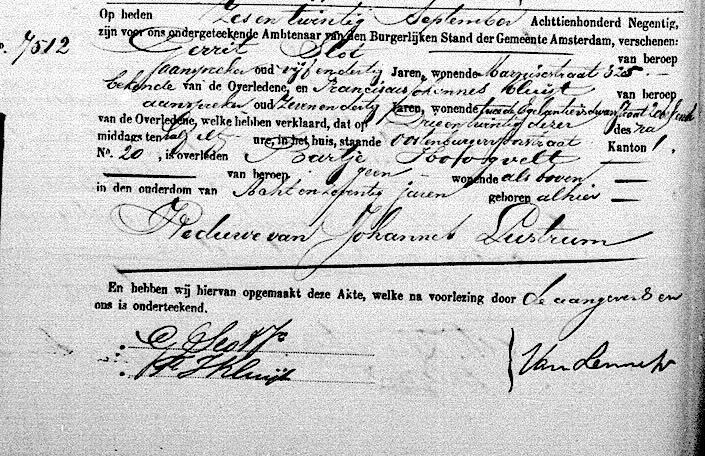 Op heden Zes en twintig September Achttienhonderd Negentig,
zijn voor ons ondergeteekende Ambtenaar van den Burgerlijken Stand der Gemeente Amsterdam, verschenen:
No. 7512
Gerrit Slot van beroep
aanspreker oud vijf en dertig Jaren, wonende Marnixstraat 325
bekende van de Overledene, en Franciscus Johannes Kluijt van beroep
aanspreker oud zeven en dertig Jaren, wonende
van de Overledene, welke hebben verklaard, dat op Drie en twintig dezer des na
middags ten half ure, in het huis, staande Oostenburgervoorstraat Kanton 1.
No. 20, is overleden Bartje Hoogvelt
van beroep geen wonende als boven
in den ouderdom van Acht en zeventig jaren geboren alhier
Weduwe van Johannes Lustrum
En hebben wij hiervan opgemaakt deze Akte, welke na voorlezing door de aangevers en
ons is onderteekend.
G Slot Jr
F. J. Kluijt
Van Lennep